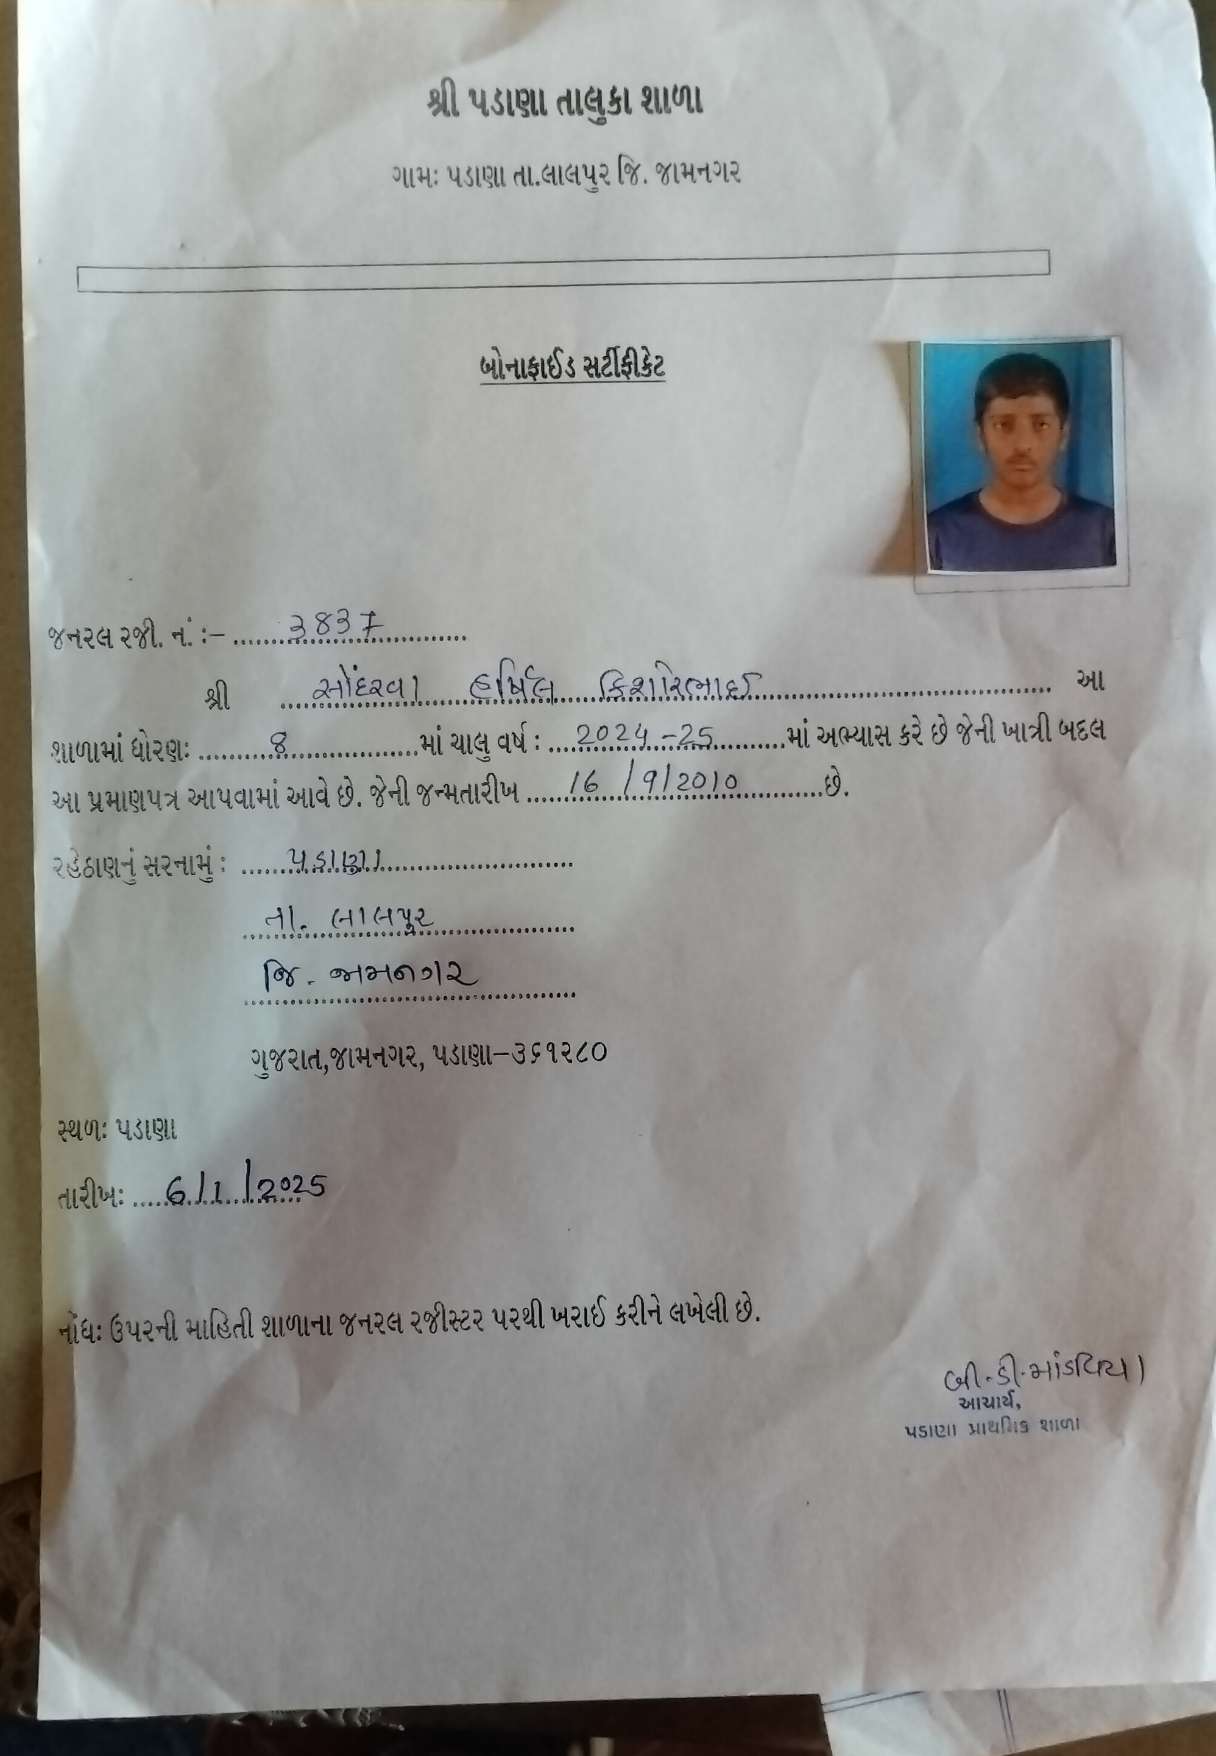 શ્રી પડાણા તાલુકા શાળા
ગામઃ પડાણા તા.લાલપુર જિ. જામનગર
બોનાફાઈડ સર્ટીફીકેટ
જનરલ રજી. નં. :– 3837
શ્રી સોંદરવા હર્ષિલ કિશોરભાઈ આ
શાળામાં ધોરણઃ 8 માં ચાલુ વર્ષ : 2024-25 માં અભ્યાસ કરે છે જેની ખાત્રી બદલ
આ પ્રમાણપત્ર આપવામાં આવે છે. જેની જન્મતારીખ 16/9/2010 છે.
રહેઠાણનું સરનામું : પડાણા
તા. લાલપુર
જિ. જામનગર
ગુજરાત,જામનગર, પડાણા–૩૬૧૨૮૦
સ્થળઃ પડાણા
તારીખઃ 6/1/2025
નોંધઃ ઉપરની માહિતી શાળાના જનરલ રજીસ્ટર પરથી ખરાઈ કરીને લખેલી છે.
બી.ડી.માંડવિયા
આચાર્ય,
પડાણા પ્રાથમિક શાળા